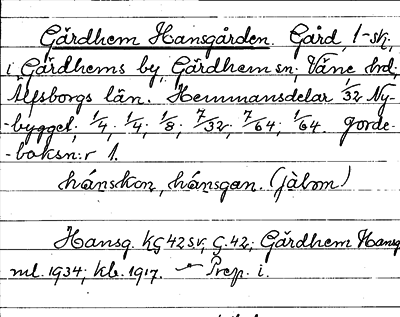 Gårdhem Hansgården. Gård, 1-sk;
i Gårdhems by, Gårdhem sn; Väne hrd;
Älfsborgs län. Hemmansdelar 1/32 Ny-
-bygget; 1/4; 1/4; 1/8; 7/32; 7/64; 1/64. Jorde-
-boksn:r 1.
hánskon, hánsgan. (jàbom)
Hansg. KG 42 SV; G. 42; Gårdhem Hansg
ml. 1934; kb. 1917. — Prep. i.